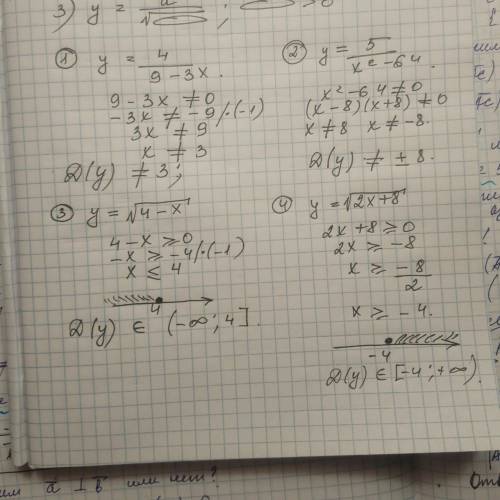 3) y = 
① y = 4/(9-3x)
9-3x ≠ 0
-3x ≠ -9 /·(-1)
3x ≠ 9
x ≠ 3
D(y) ≠ 3;
② y = 5/(x²-64).
x²-64 ≠ 0
(x-8)(x+8) ≠ 0
x ≠ 8 x ≠ -8.
D(y) ≠ ± 8.
③ y = √(4-x)
4-x ≥ 0
-x ≥ -4 /·(-1)
x ≤ 4
4
D(y) ∈ (-∞; 4].
④ y = √(2x+8)
2x+8 ≥ 0
2x ≥ -8
x ≥ -8/2
x ≥ -4.
-4
D(y) ∈ [-4; +∞).
a ⊥ b или нет?